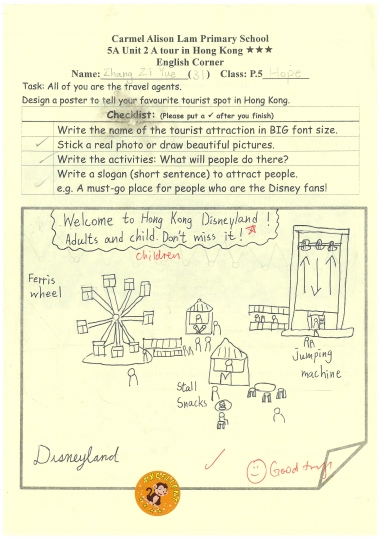 Carmel Alison Lam Primary School
5A Unit 2 A tour in Hong Kong ★★★
English Corner
Name: Zhang Zi Yue (31) Class: P.5 Hope
Task: All of you are the travel agents.
Design a poster to tell your favourite tourist spot in Hong Kong.
Checklist: (Please put a ✓ after you finish)
Write the name of the tourist attraction in BIG font size.
✓ Stick a real photo or draw beautiful pictures.
✓ Write the activities: What will people do there?
✓ Write a slogan (short sentence) to attract people.
e.g. A must-go place for people who are the Disney fans!
Welcome to Hong Kong Disneyland!
Adults and child. Don't miss it!
children
Ferris
wheel
Jumping
machine
Stall
Snacks
Disneyland
✓
Good